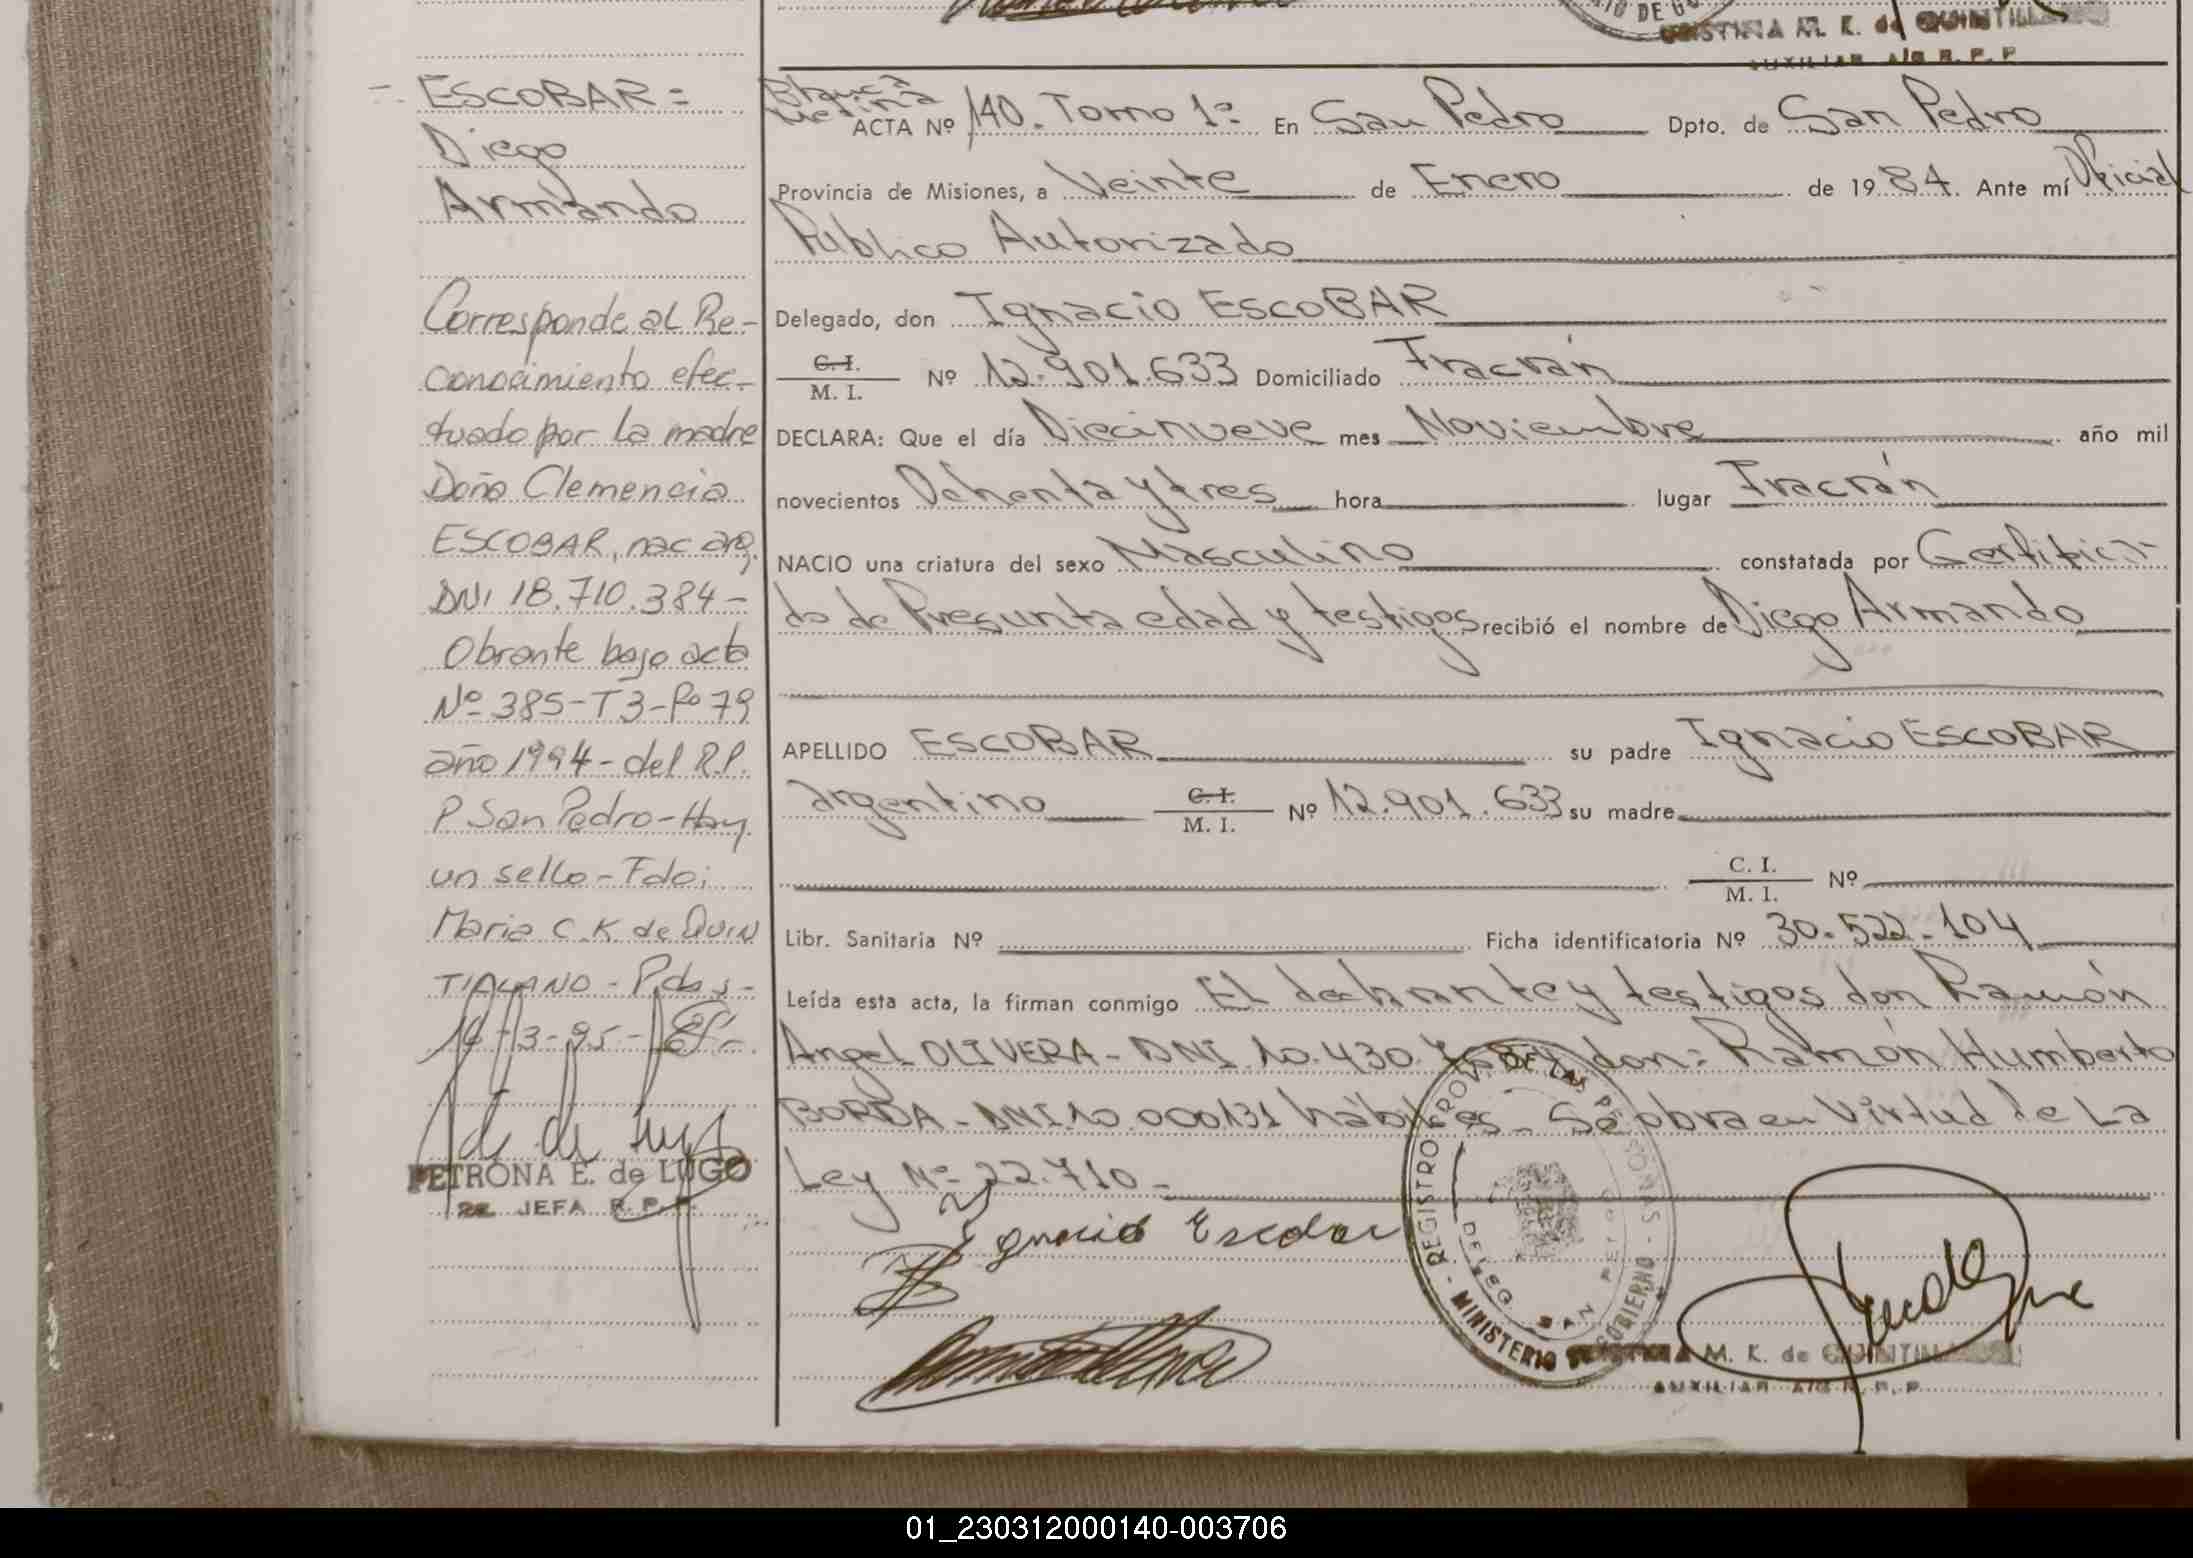 IO DE GO
CRISTINA M. K. de QUINTILLANO
AUXILIAR A/G R. P. P.
ESCOBAR=
Diego
Armando
Corresponde al Re-
conocimiento efec-
tuado por la madre
Doña Clemencia
ESCOBAR, nac arg.
DNI 18.710.384-
Obrante bajo acta
Nº 385-T3-Fº 79
año 1994-del R.P.
P San Pedro-Hay
un sello-Fdo:
Maria C.K de QUIN
TILLANO - Pdas-
-3-95-
PETRONA E. de LUGO
JEFA R. P. P.
Blanca
ACTA Nº 140. Tomo 1º En San Pedro Dpto. de San Pedro
Provincia de Misiones, a Veinte de Enero de 1984. Ante mí Oficial
Publico Autorizado
Delegado, don Ignacio ESCOBAR
C.I. M. I. Nº 12.901.633 Domiciliado Fracrán
DECLARA: Que el día Diecinueve mes Noviembre año mil
novecientos Ochenta y tres hora lugar Fracrán
NACIO una criatura del sexo Masculino constatada por Certifica-
do de Presunta edad y testigos recibió el nombre de Diego Armando
APELLIDO ESCOBAR su padre Ignacio ESCOBAR
argentino C.I. M. I. Nº 12.901.633 su madre
C. I. M. I. Nº
Libr. Sanitaria Nº Ficha identificatoria Nº 30.522.104
Leída esta acta, la firman conmigo El declarante y testigos don Ramón
Angel OLIVERA - DNI. 10.430. y don= Ramón Humberto
BORDA - DNI.10.000131 hábiles - Se obra en Virtud de La
Ley Nº 22.710-
Ignacio Escobar
REGISTRO PROV. DE LAS PERSONAS - MINISTERIO DE GOBIERNO -
DELEG. SAN PEDRO
CRISTINA M. K. de QUINTILLANO
AUXILIAR A/G R. P. P.
01_230312000140-003706